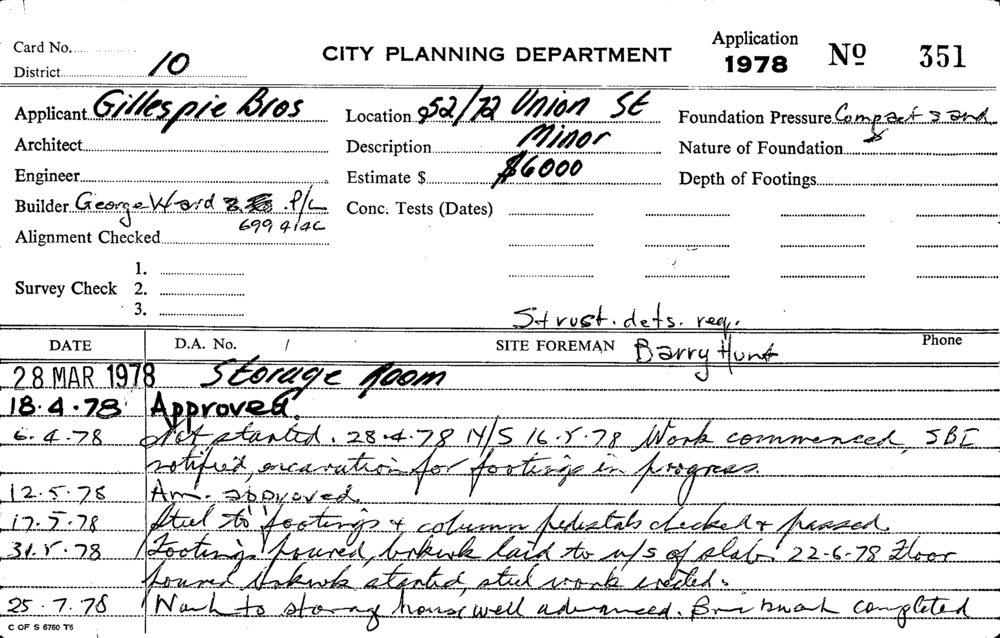 Card No.
District 10
CITY PLANNING DEPARTMENT
Application
1978
No 351
Applicant Gillespie Bros
Location 52/72 Union St
Foundation Pressure Compact sand
Architect
Description Minor
Nature of Foundation
Engineer
Estimate $ $6000
Depth of Footings
Builder George Ward P/L
699 4146
Conc. Tests (Dates)
Alignment Checked
1.
Survey Check 2.
3.
Strust. dets. req.
DATE
D.A. No. /
SITE FOREMAN Barry Hunt
Phone
28 MAR 1978 Storage Room
18.4.78 Approved.
6.4.78 Not started. 28.4.78 N/S 16.5.78 Work commenced, SBI
notified, excavation for footings in progress.
12.5.78 Am. approved.
17.5.78 Steel to footings & column pedistals checked & passed.
31.5.78 Footings poured, brkwk laid to u/s of slab. 22-6-78 Floor
poured brkwk started, steel work erected.
25.7.78 Work to storag house well advanced. Brickwork completed
C OF S 6760 T5